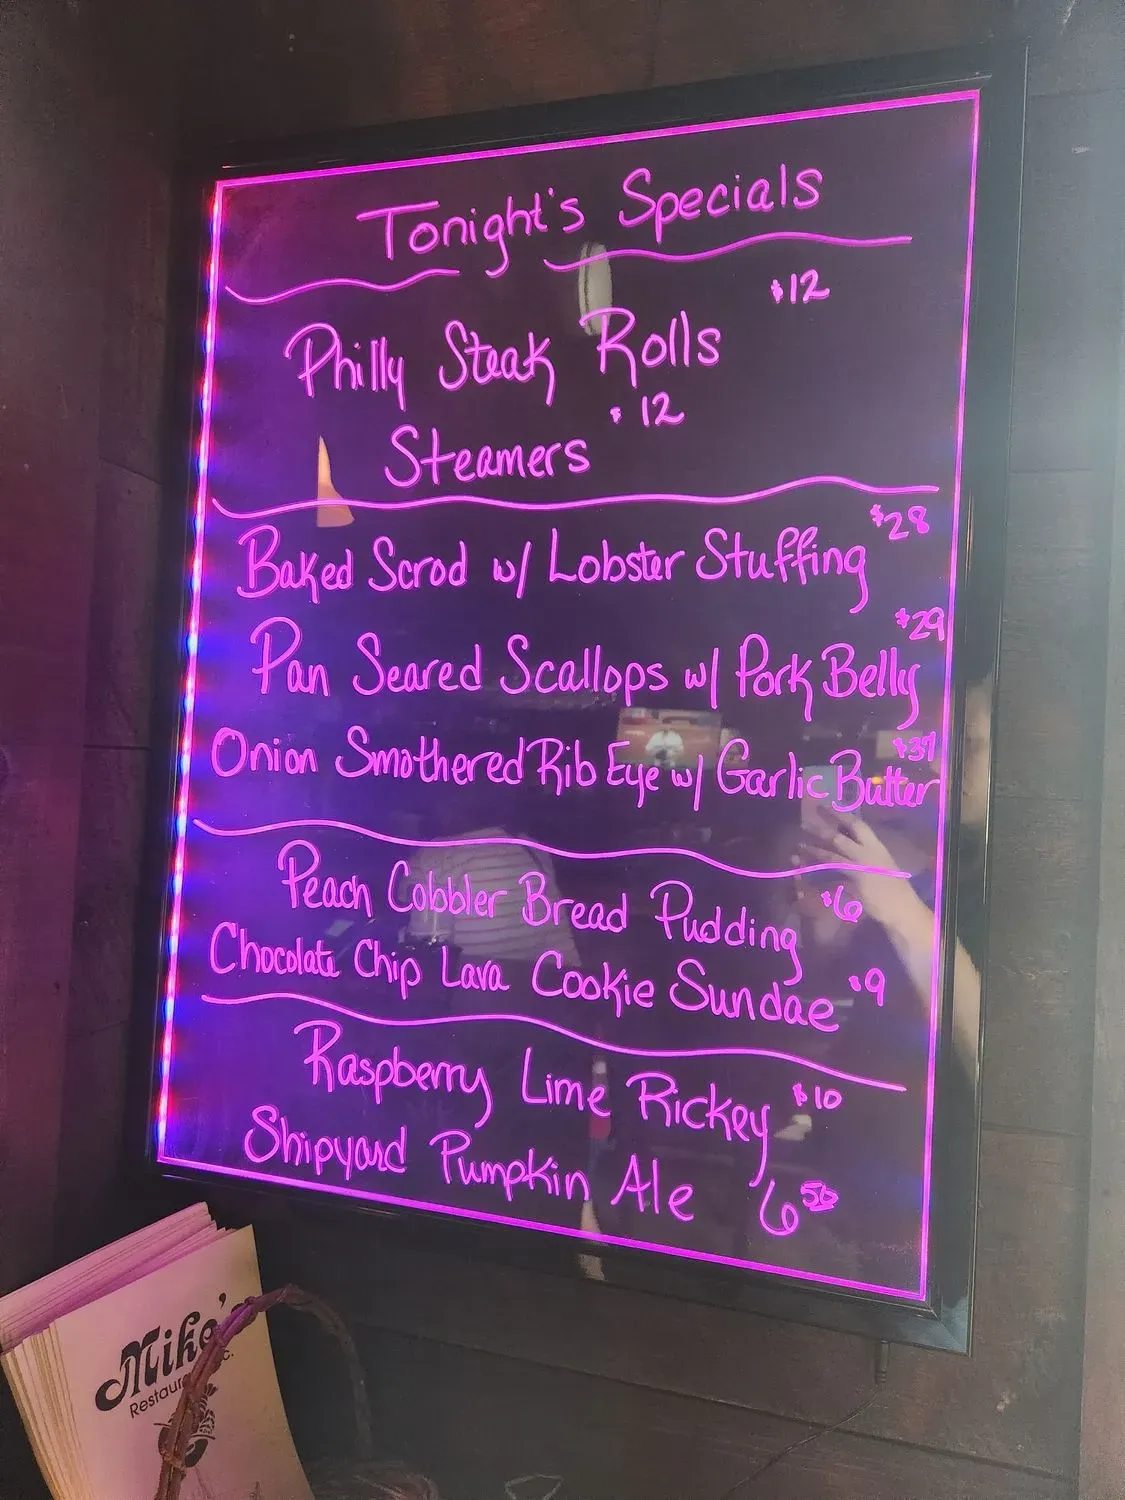 Tonight's Specials
Philly Steak Rolls $12
Steamers $12
Baked Scrod w/ Lobster Stuffing $28
Pan Seared Scallops w/ Pork Belly $29
Onion Smothered Rib Eye w/ Garlic Butter
Peach Cobbler Bread Pudding $6
Chocolate Chip Lava Cookie Sundae $9
Raspberry Lime Rickey $10
Shipyard Pumpkin Ale 6 50
Mike's